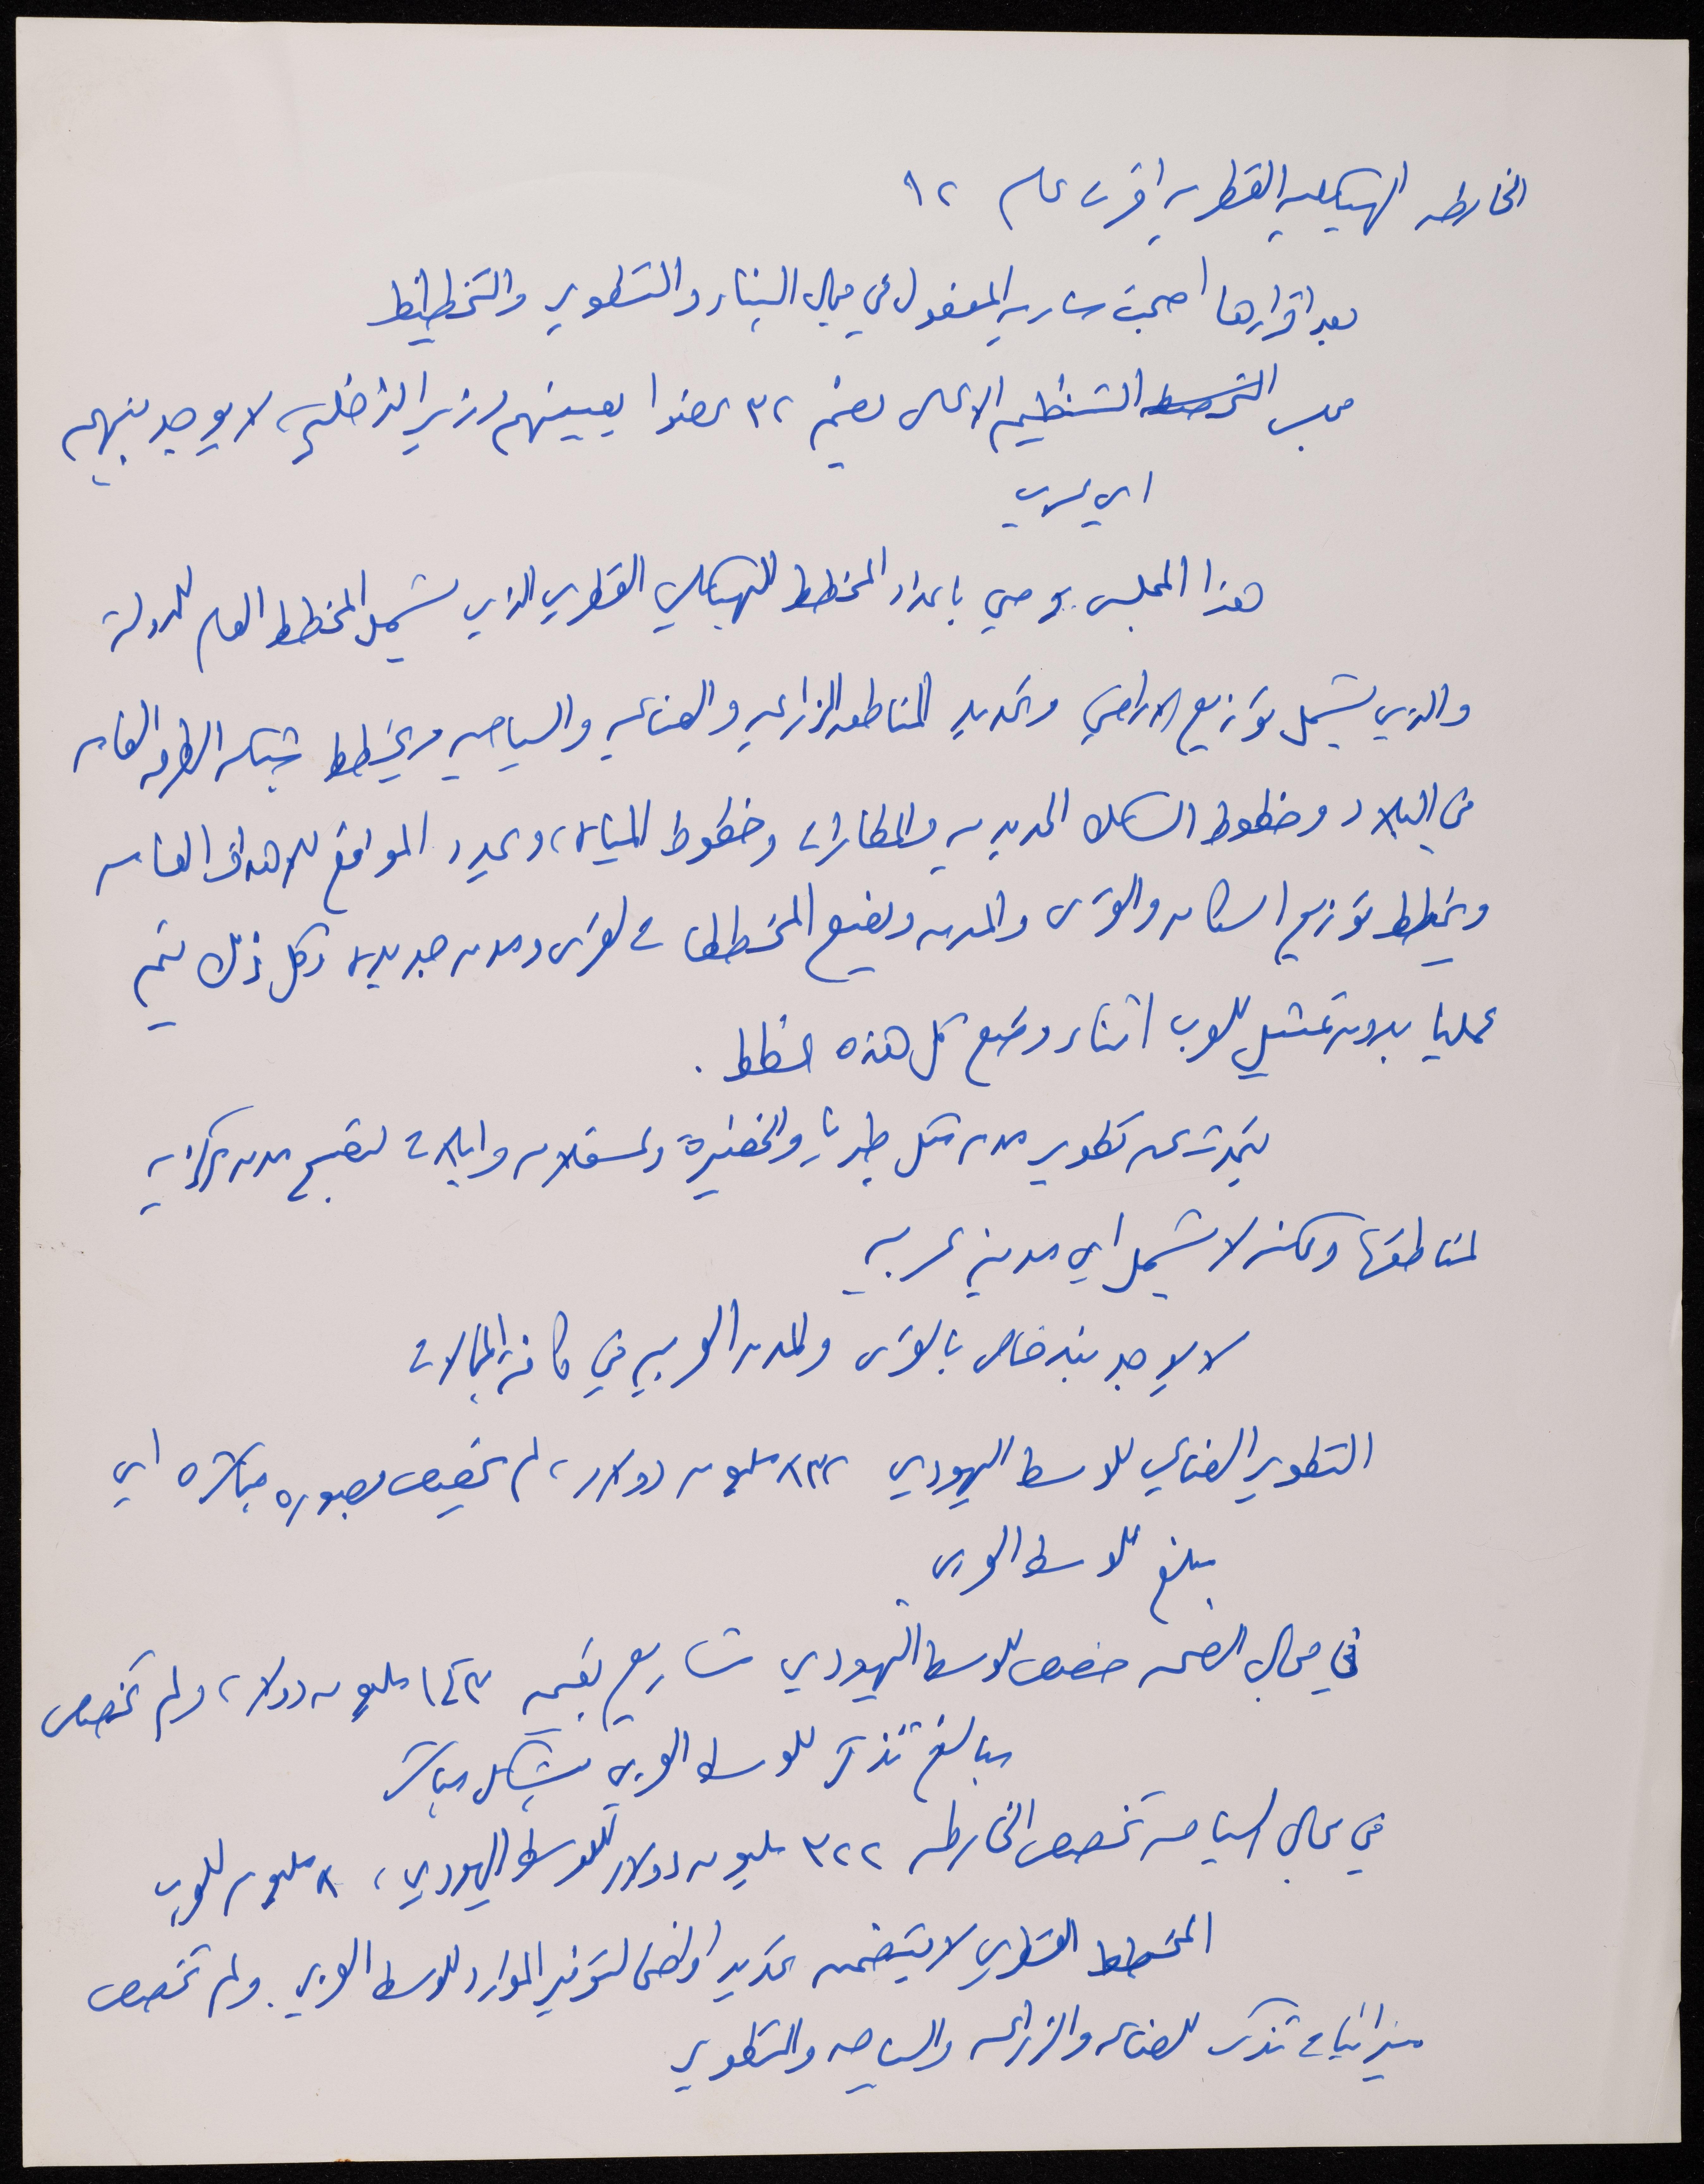 الخارطه الهيكليه القطريه اقرت عام ٩٢
بعد اقرارها اصبحت ساريه المفعول في مجال البناء والتطوير والتخطيط
مجلس التنظيم الاعلى يضم ٣٢ عضوا يعينهم وزير الداخليه، لا يوجد بينهم
اي عربي
هذا المجلس يوصي باعداد المخطط الهيكلي القطري الذي يشمل المخطط العام للدولة
والذي يشمل توزيع الاراضي وتحديد المناطق الزراعيه والصناعيه والسياحيه ويخطط شبكه الطرق العامه
في البلاد وخطوط السكك الحديديه والمطارات وخطوط المياه، ويحدد المواقع للاهداف العامه
ويخطط توزيع السكان والقرى والمدن ويضع المخططات لقرى ومدن جديده وكل ذلك يتم
عمليا بدون تمثيل للعرب اثناء وضع كل هذه الخطط.
يتحدث عن تطوير مدن مثل طبريا والخضيرة وعسقلان وايلات لتصبح مدن مركزيه
لمناطقها ولكنه لا يشمل اي مدينه عربيه
لا يوجد بند خاص بالقرى والمدن العربيه في كافة المجالات
التطوير الصناعي للوسط اليهودي ٨٣٢ مليون دولار، لم يخصص بصوره مباشره اي
مبلغ للوسط العربي
في مجال الصحه خصص للوسط اليهودي مشاريع بقيمه ١٤٣ مليون دولار، ولم تخصص
مبالغ تذكر للوسط العربي بشكل مباشر
في مجال السياحه تخصص الخارطه ٣٢٢ مليون دولار للوسط اليهودي، ٨ مليون للعرب
المخطط القطري لا يتضمن تحديد اراضي لتوفير الموارد للوسط العربي. ولم تخصص
ميزانيات تذكر للصناعه والزراعه والسياحه والتطوير